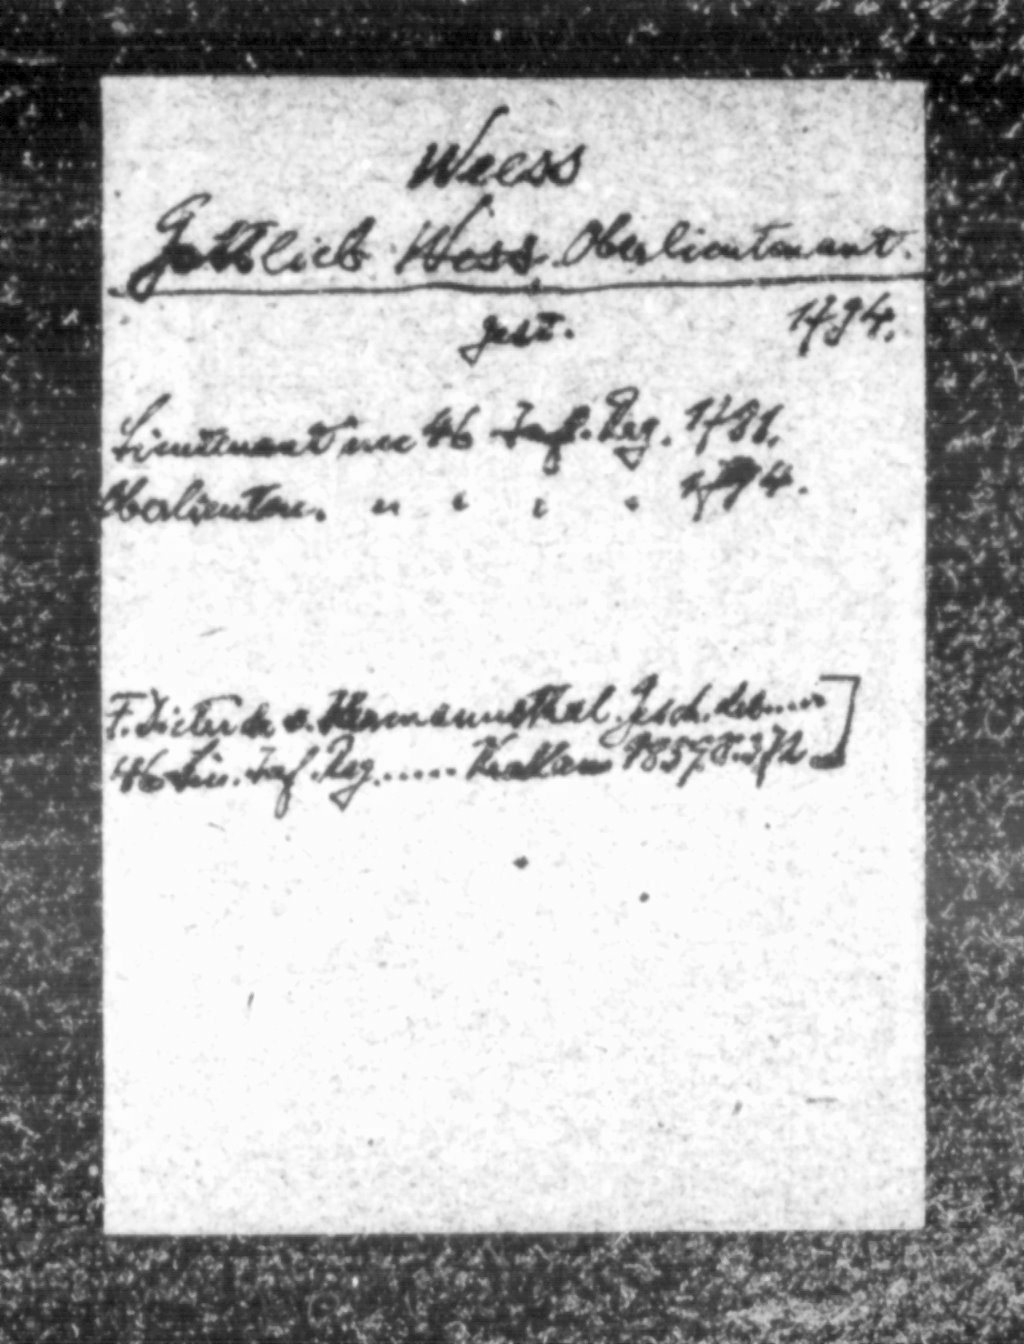 Weess
Gottlieb Wess Oberlieutenant.
gest. 1794.
Lieutenant im 46 Inf. Reg. 1781.
Oberlieuten. " " " " 1794.
F. Dieterich v. Hermannsthal. Gesch. des......
46 Lin. Inf. Reg...... Krakau 1859 S. 372]